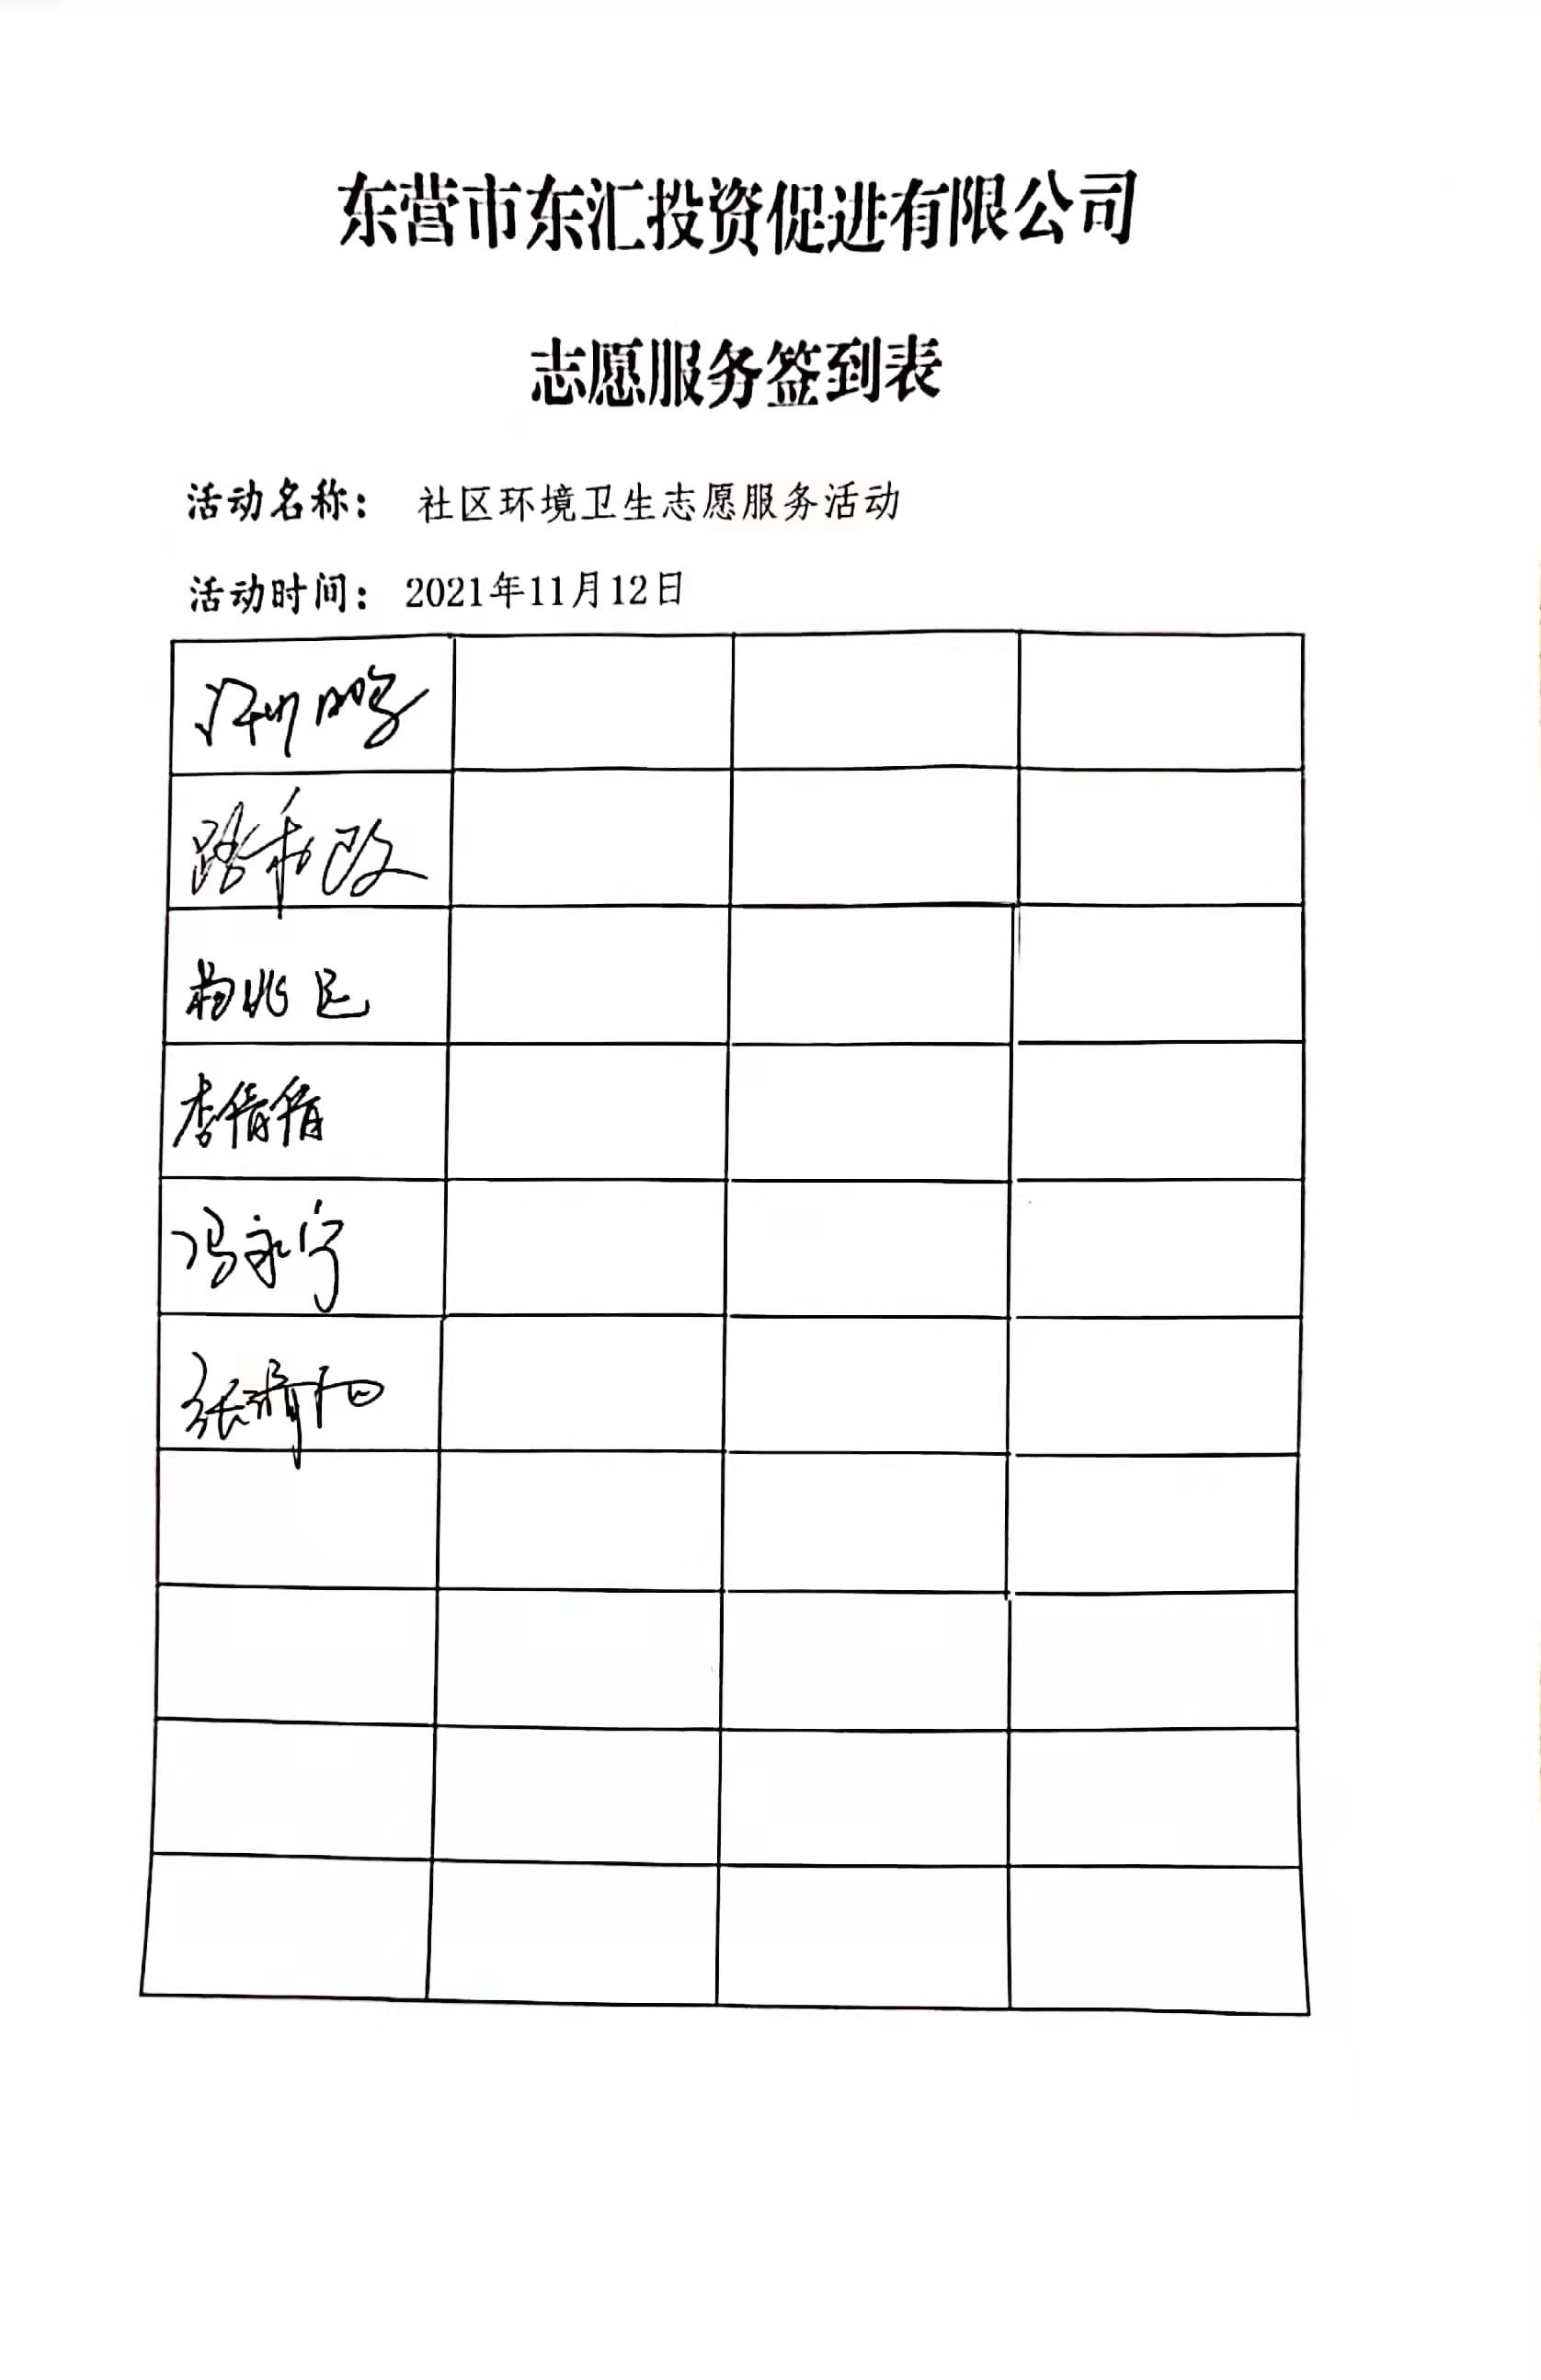 东营市东汇投资促进有限公司
志愿服务签到表
活动名称： 社区环境卫生志愿服务活动
活动时间： 2021年11月12日
李倩倩
冯永宁